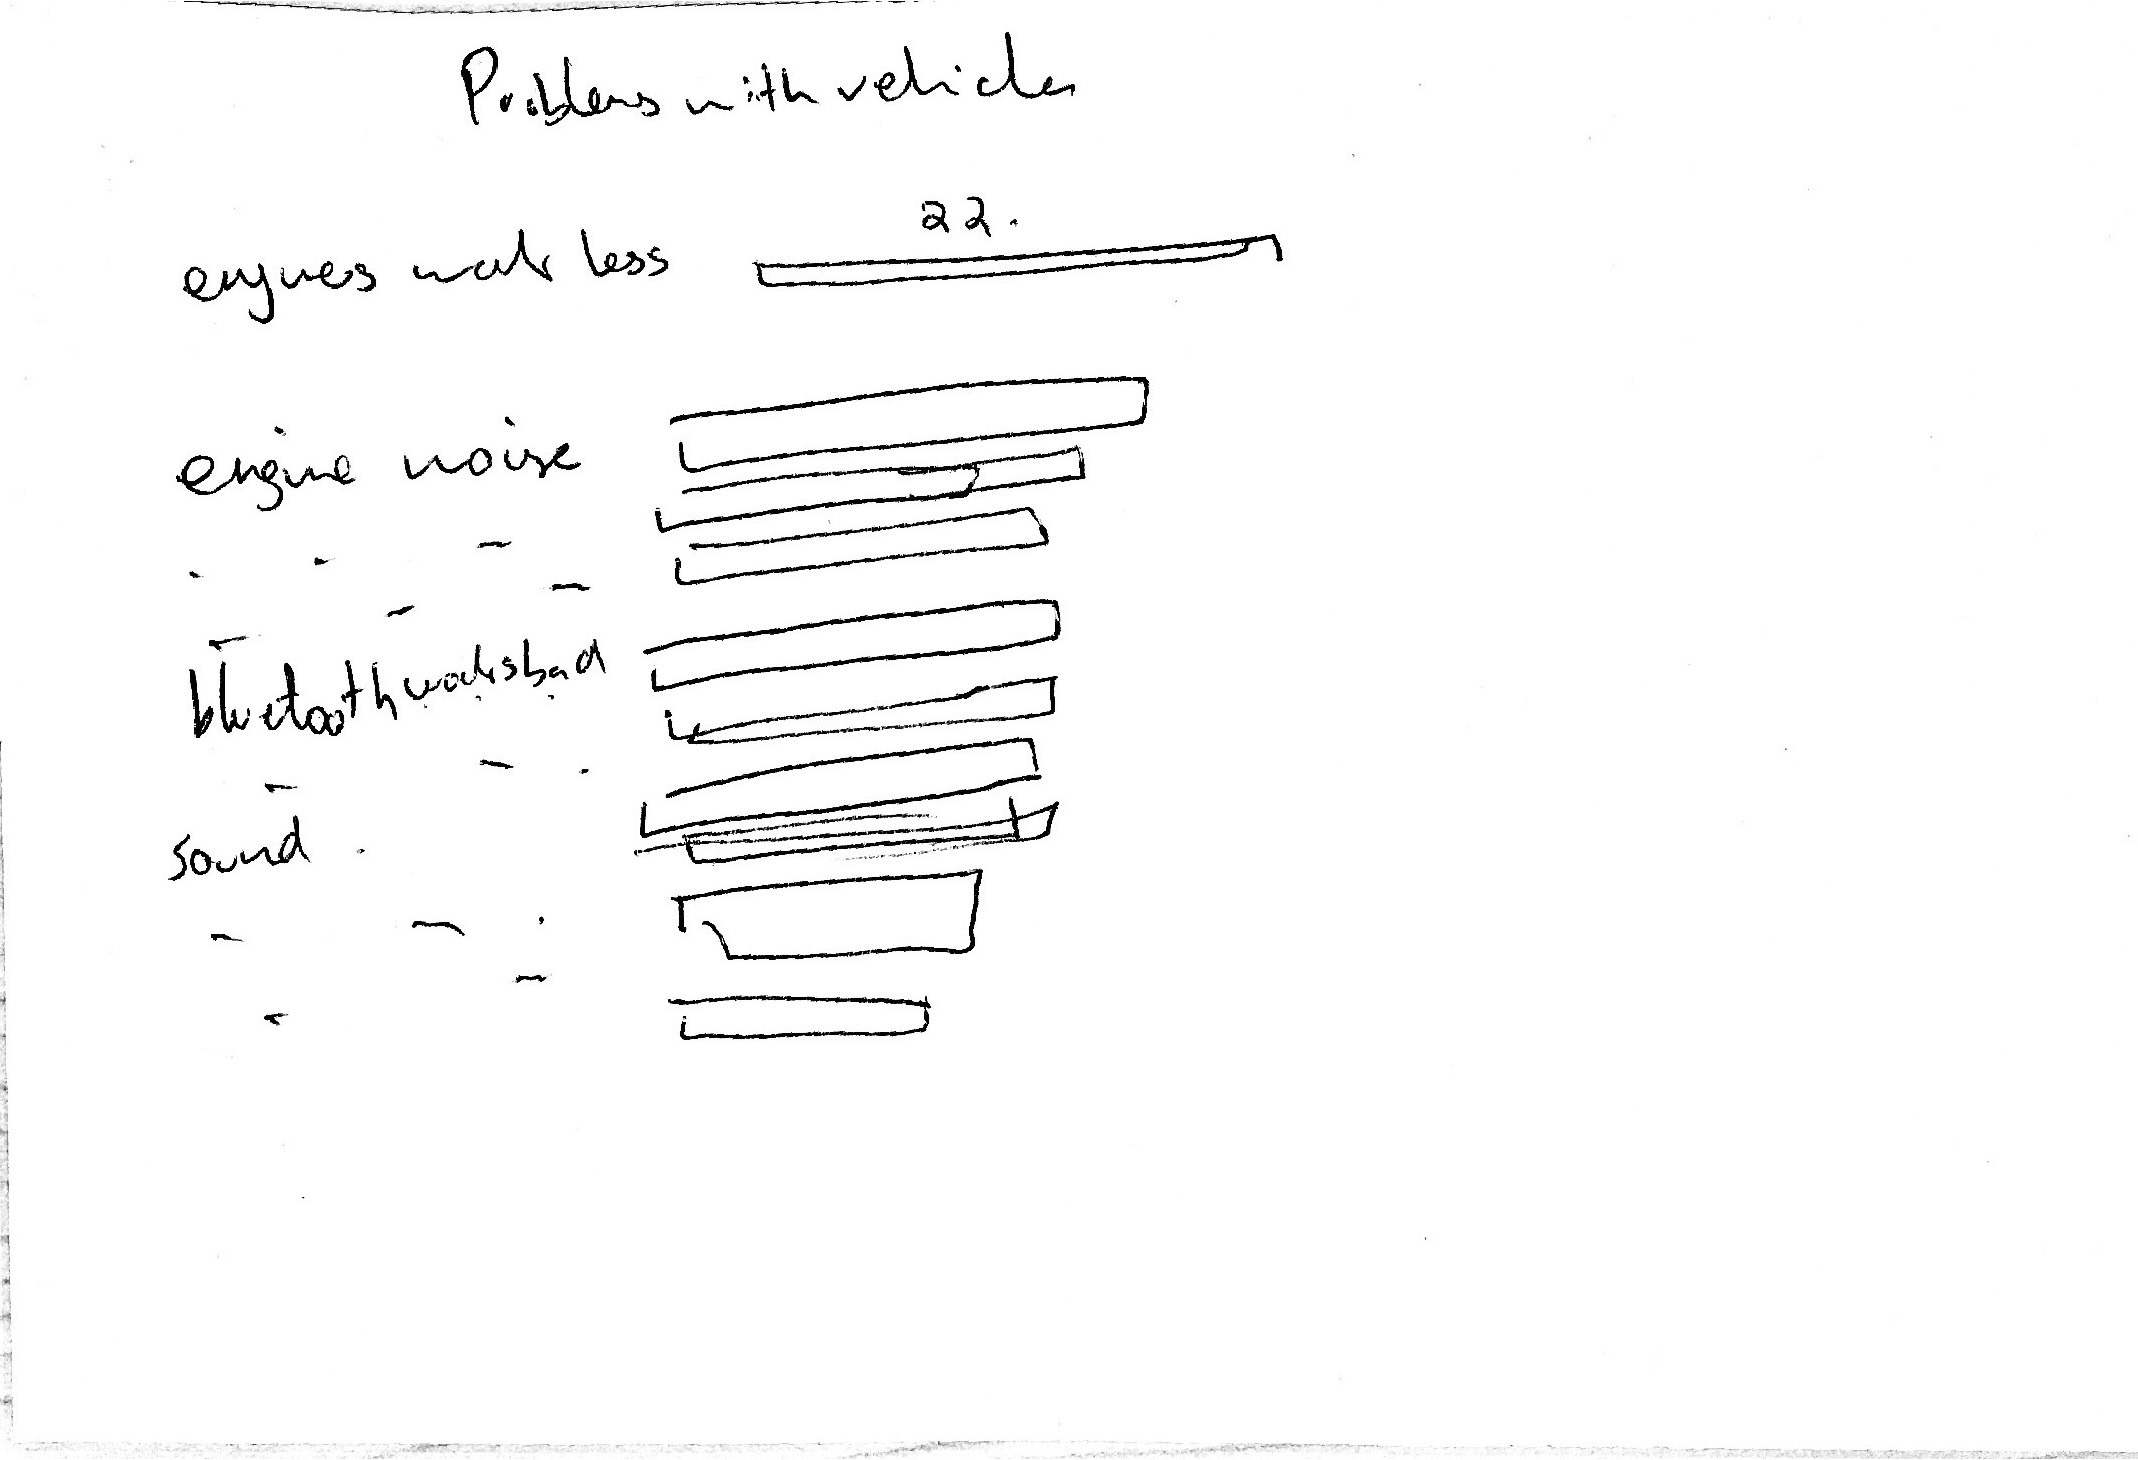 Problems with vehicles
22.
engines work less
engine noise
bluetooth works bad
sound